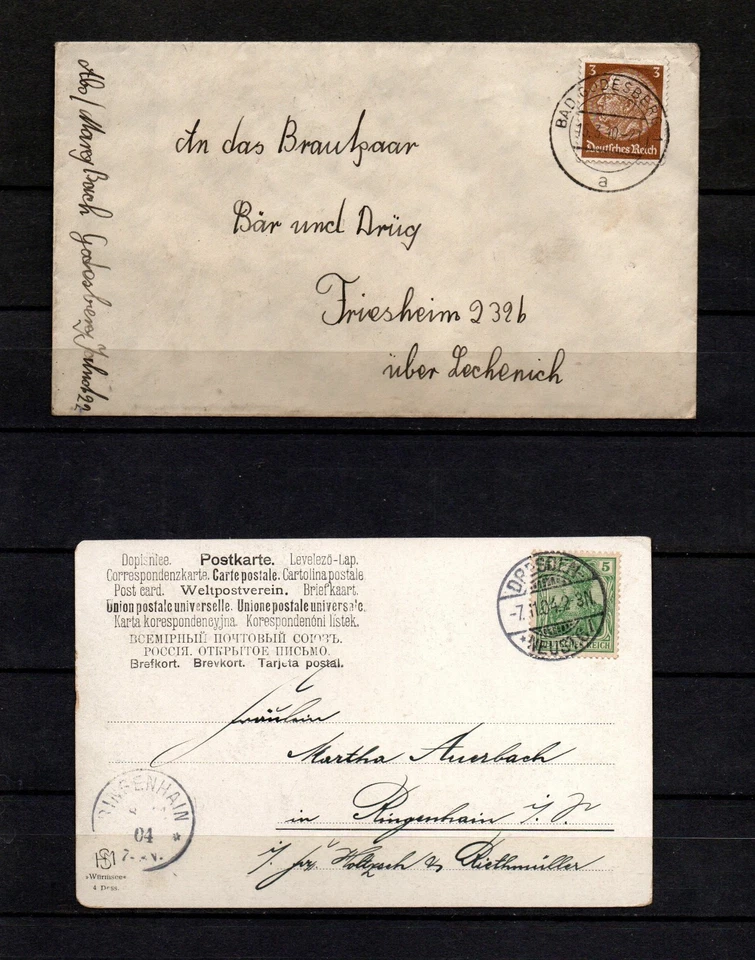 Abs/ Marg Bach Godesberg
22
An das Brautpaar
Bär und Drüg
Friesheim 239b
über Lechenich
3 3
Deutsches Reich
BAD GODESBERG
a
Dopisnice. Postkarte. Levelező-Lap.
Correspondenzkarte. Carte postale. Cartolina postale
Post card. Weltpostverein. Briefkaart.
Union postale universelle. Unione postale universale.
Karta korespondencyjna. Korespondenčni listek.
ВСЕМІРНЫЙ ПОЧТОВЫЙ СОЮЗЪ.
РОССІЯ. ОТКРЫТОЕ ПИСЬМО.
Brefkort. Brevkort. Tarjeta postal.
5
REICH
DRESDEN-
-7.11.04.2-3N
*NEUST.*
Fräulein
Martha Auerbach
in Ringenhain i/S.
Riethmüller
RINGENHAIN
04
*
»Würmsee«
4 Dess.